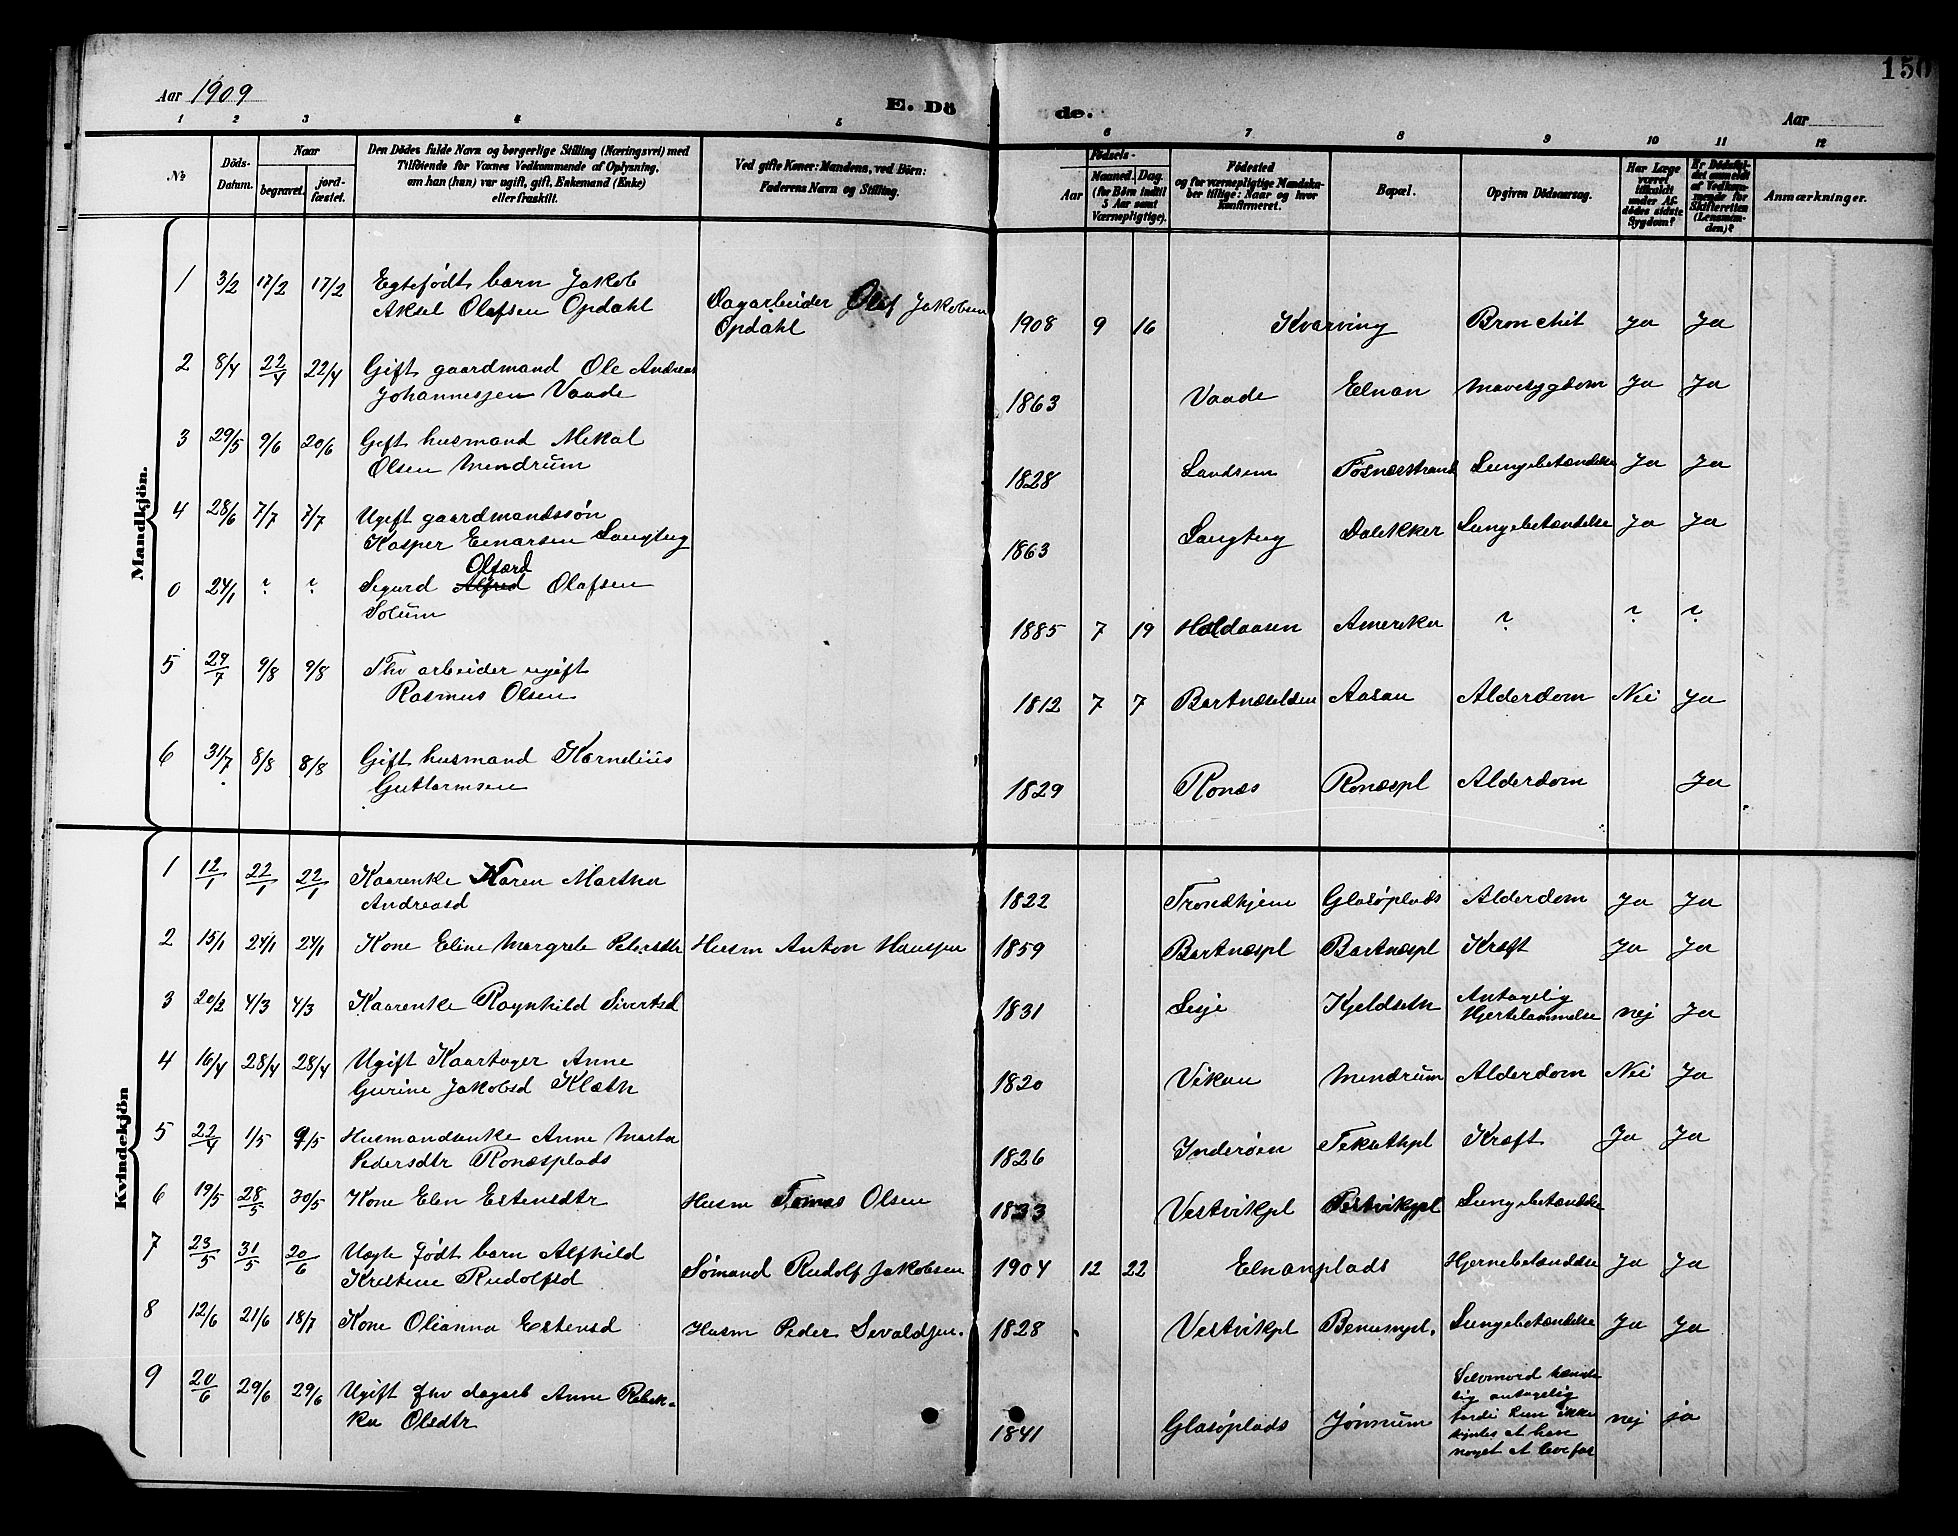 150
Aar 1909
E. Dö de.
Aar
1 2 3 4 5 6 7 8 9 10 11 12
№
Döds-Datum.
Naar
begravet.
jord-fæstet.
Den Dödes fulde Navn og borgerlige Stilling (Næringsvei) med
Tilföiende for Voxnes Vedkommende af Oplysning,
om han (hun) var ugift, gift, Enkemand (Enke)
eller fraskilt.
Ved gifte Koner: Mandens, ved Börn:
Faderens Navn og Stilling.
Födsels-
Aar
Maaned. Dag.
(for Börn indtil
5 Aar samt
Værnepligtige).
Födested
og for værnepligtige Mandska-
ber tillige: Naar og hvor
konfirmeret.
Bopæl.
Opgiven Dödsaarsag.
Har Læge
været
tilkaldt
under Af-
dödes sidste
Sygdom?
Er Dödsfal-
det anmeldt
af Vedkom-
mende for
Skifteretten
(Lensman-
den)?
Anmærkninger.
Mandkjön.
1 3/2 17/2 17/2 Egtefødt barn Jakob
Aksel Olafsen Opdahl
Dagarbeider Olaf Jakobsen
Opdahl
1908 9 16 Kvarving Bronchit Ja Ja
2 8/4 22/4 22/4 Gift gaardmand Ole Andreas
Johannessen Vaade
1863 Vaade Elnan Mavesygdom Ja Ja
3 29/5 9/6 20/6 Gift husmand Mikal
Olsen Mendrum
1828 Landsem Fosnæsstrand Lungebetændelse Ja Ja
4 28/6 7/7 7/7 Ugift gaardmandssøn
Kasper Einarsen Langtug
1863 Langtug Dalekker Lungebetændelse Ja Ja
Olsærd
0 24/1 ? ? Sigurd Alfred Olafsen
Solum
1885 7 19 Haldaasen Amerika ? ? ?
5 29/7 9/8 9/8 Fhv arbeider ugift
Rasmus Olsen
1812 7 7 Bartnæseldsen Aasan Alderdom Nei Ja
6 31/7 8/8 8/8 Gift husmand Kornelius
Guttormsen
1829 Ronæs Ronæspl Alderdom Ja
Kvindekjön
1 12/1 22/1 22/1 Kaarenke Karen Martha
Andreasd
1822 Trondhjem Glasøplads Alderdom Ja Ja
2 15/1 24/1 24/1 Kone Eline Margrete Petersdtr Husm Anton Hansen
1859 Bartnæspl Bartnæspl Kræft Ja Ja
3 20/2 4/3 4/3 Kaarenke Ragnhild Sivertsd
1831 Lesje Kjeldseth Antagelig
Hjertelammelse nej Ja
4 16/4 28/4 28/4 Ugift Kaartager Anne
Gurine Jakobsd Klæth
1820 Vikan Mendrum Alderdom Nei Ja
5 22/4 1/5 9/5 Husmandsenke Anne Marta
Pedersdtr Ronæsplads
1826 Inderøen Tekuthpl Kræft Ja Ja
6 19/5 28/5 30/5 Kone Elen Estensdtr Husm Tomas Olsen
1833 Vestvikpl Vestvikpl Lungebetændelse
7 23/5 31/5 20/6 Uegte født barn Alfhild
Kristine Rudolfsd
Sømand Rudolf Jakobsen
1904 12 22 Elnanplads Hjernebetændelse Ja Ja
8 12/6 21/6 18/7 Kone Olianna Estensd Husm Peder Sevaldsen.
1828 Vestvikpl Benumpl. Lungebetændelse Ja Ja
9 20/6 29/6 29/6 Ugift fhv dagarb Anne Rebek-
ka Olsdtr
1841 Glasøplads Jønnum Selvmord hænde
lig antagelig
fordi hun ikke
syntes at have
noget at leve for nej ja